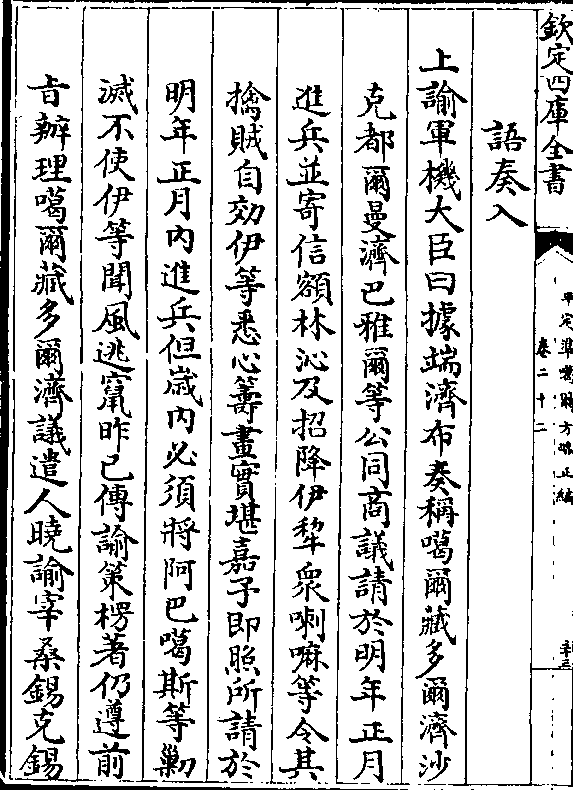 欽定四庫全書
平定準噶爾方略正編
卷二十二
語奏入
上諭軍機大臣曰據端濟布奏稱噶爾藏多爾濟沙
克都爾曼濟巴雅爾等公同商議請於明年正月
進兵並寄信額林沁及招降伊犂衆喇嘛等令其
擒賊自効伊等悉心籌畫實堪嘉予即照所請於
明年正月內進兵但嵗內必須將阿巴噶斯等勦
滅不使伊等聞風逃竄昨已傳諭策楞著仍遵前
㫖辦理噶爾藏多爾濟議遣人曉諭宰桑錫克錫